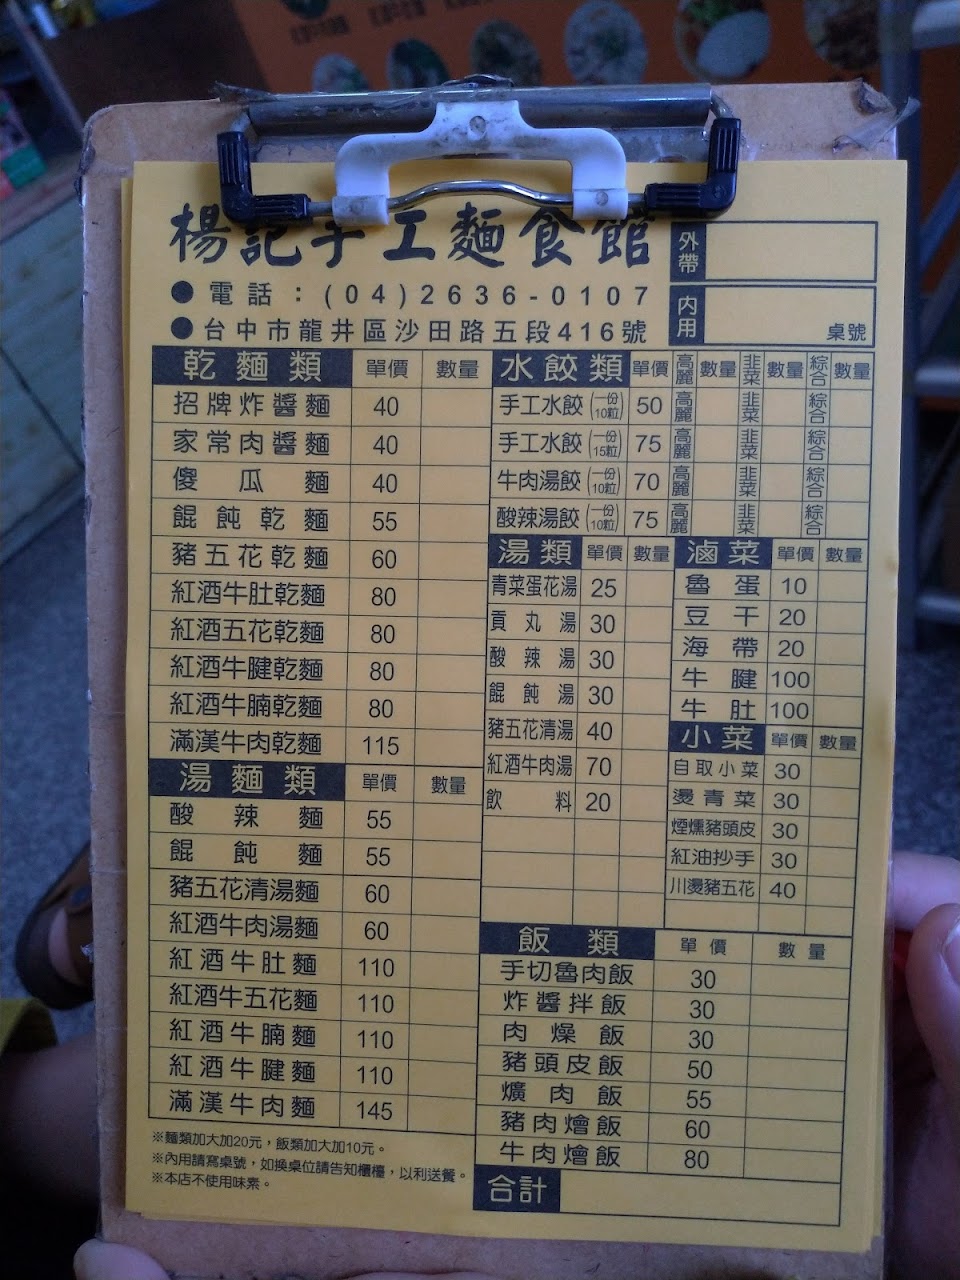 楊記手工麵食館
● 電話：(04)2636-0107
● 台中市龍井區沙田路五段416號
外帶
內用 桌號
乾麵類 單價 數量
招牌炸醬麵 40
家常肉醬麵 40
傻瓜麵 40
餛飩乾麵 55
豬五花乾麵 60
紅酒牛肚乾麵 80
紅酒五花乾麵 80
紅酒牛腱乾麵 80
紅酒牛腩乾麵 80
滿漢牛肉乾麵 115
湯麵類 單價 數量
酸辣麵 55
餛飩麵 55
豬五花清湯麵 60
紅酒牛肉湯麵 60
紅酒牛肚麵 110
紅酒牛五花麵 110
紅酒牛腩麵 110
紅酒牛腱麵 110
滿漢牛肉麵 145
※麵類加大加20元，飯類加大加10元。
※內用請寫桌號，如換桌位請告知櫃檯，以利送餐。
※本店不使用味素。
水餃類 單價 高麗 數量 韭菜 數量 綜合 數量
手工水餃(一份10粒) 50 高麗 韭菜 綜合
手工水餃(一份15粒) 75 高麗 韭菜 綜合
牛肉湯餃(一份10粒) 70 高麗 韭菜 綜合
酸辣湯餃(一份10粒) 75 高麗 韭菜 綜合
湯類 單價 數量
青菜蛋花湯 25
貢丸湯 30
酸辣湯 30
餛飩湯 30
豬五花清湯 40
紅酒牛肉湯 70
飲料 20
滷菜 單價 數量
魯蛋 10
豆干 20
海帶 20
牛腱 100
牛肚 100
小菜 單價 數量
自取小菜 30
燙青菜 30
煙燻豬頭皮 30
紅油抄手 30
川燙豬五花 40
飯類 單價 數量
手切魯肉飯 30
炸醬拌飯 30
肉燥飯 30
豬頭皮飯 50
爌肉飯 55
豬肉燴飯 60
牛肉燴飯 80
合計